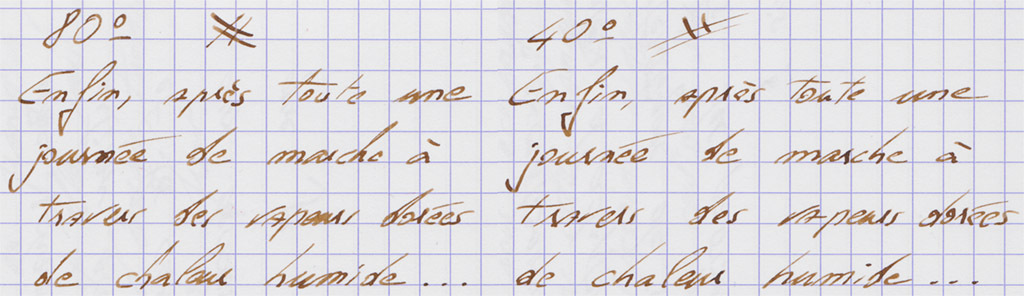 80º
Enfin, après toute une
journée de marche à
travers des vapeurs dorées
de chaleur humide...
40º
Enfin, après toute une
journée de marche à
travers des vapeurs dorées
de chaleur humide...